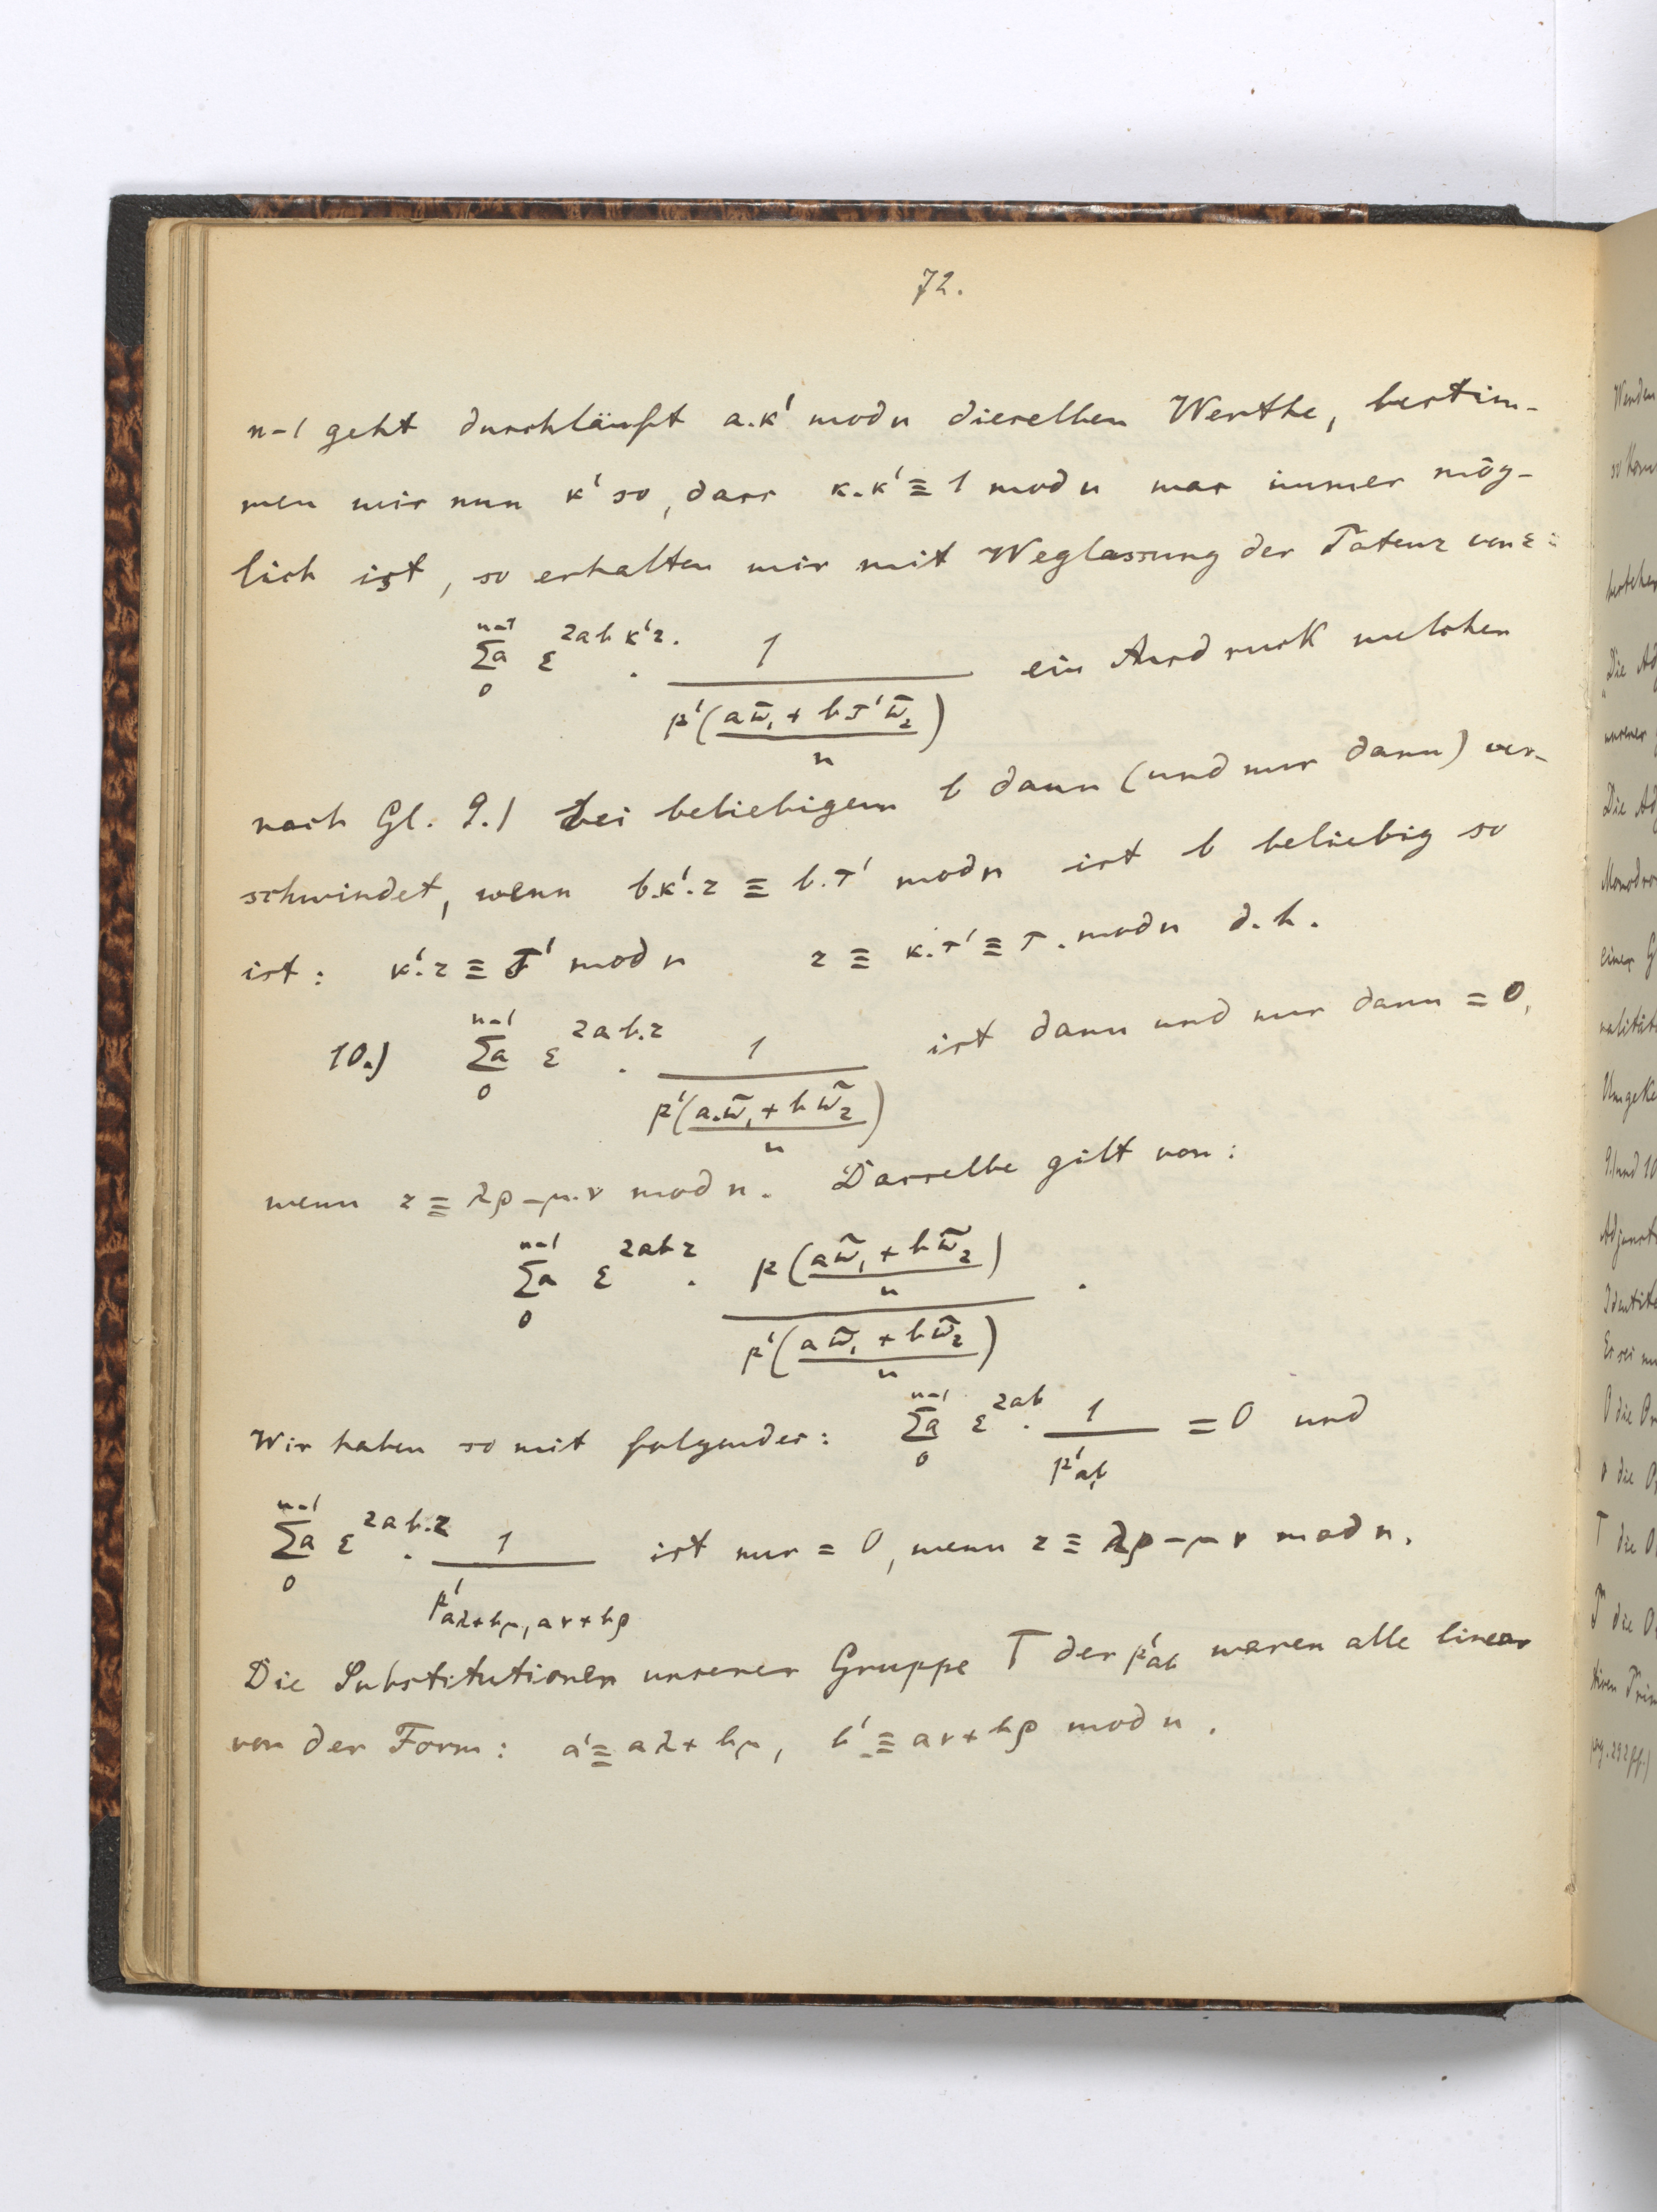 72.
n-1 geht durchläuft a.κ' mod n dieselben Werthe, bestim-
men wir nun κ' so, dass κ.κ' ≡ 1 mod n was immer mög-
lich ist, so erhalten wir mit Weglassung der Potenz von ε:
\sum_{0}^{n-1}{}_a ε^{2ab κ'z} . \frac{1}{p'(\frac{a\tilde{ω}_1 + b τ' \tilde{ω}_2}{n})} ein Ausdruck welcher
nach Gl. 9.) bei beliebigem b dann (und nur dann) ver-
schwindet, wenn b.κ'.z ≡ b.τ' mod n ist b beliebig so
ist: κ'.z ≡ τ' mod n z ≡ κ.τ' ≡ τ. mod n d.h.
10.) \sum_{0}^{n-1}{}_a ε^{2ab.z} . \frac{1}{p'(\frac{a.\tilde{ω}_1 + b\tilde{ω}_2}{n})} ist dann und nur dann = 0,
wenn z ≡ λρ - μ.ν mod n. Dasselbe gilt von:
\sum_{0}^{n-1}{}_a ε^{2abz} . \frac{p(\frac{a\tilde{ω}_1 + b\tilde{ω}_2}{n})}{p'(\frac{a\tilde{ω}_1 + b\tilde{ω}_2}{n})} .
Wir haben somit folgendes: \sum_{0}^{n-1}{}_a ε^{2ab} . \frac{1}{p'_{a,b}} = 0 und
\sum_{0}^{n-1}{}_a ε^{2ab.z} . \frac{1}{p'_{aλ+bμ, aν+bρ}} ist nur = 0, wenn z ≡ λρ - μν mod n.
Die Substitutionen unserer Gruppe T der p'_{ab} waren alle linear
von der Form: a' ≡ aλ + bμ, b' ≡ aν + bρ mod n.